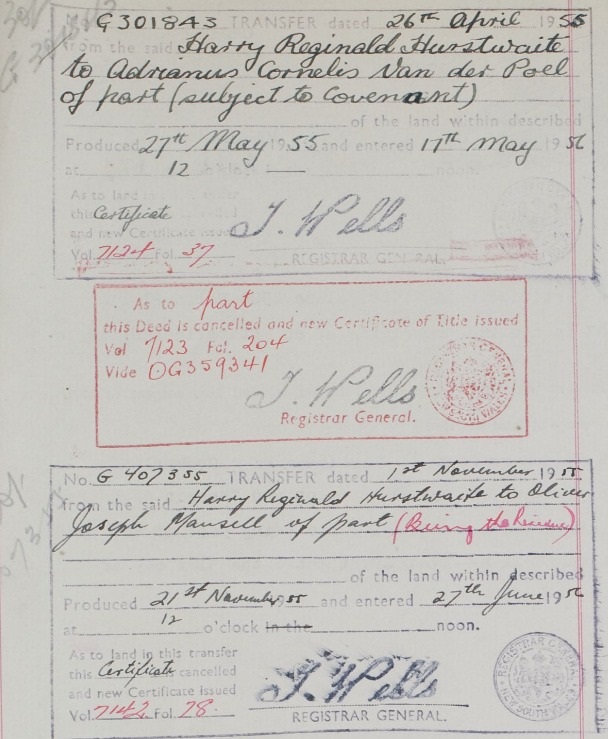 No. G301843 TRANSFER dated 26th April 1955
from the said Harry Reginald Hurstwaite
to Adrianus Cornelis Van der Poel
of part (subject to Covenant)
of the land within described
Produced 27th May 1955 and entered 17th May 1956
at 12 o'clock noon.
As to land in transfer
this Certificate cancelled
and new Certificate issued
Vol. 7124 Fol. 37
J. Wells
REGISTRAR GENERAL.
As to part
this Deed is cancelled and new Certificate of Title issued
Vol 7123 Fol. 204
Vide DG359341
J. Wells
Registrar General.
No. G 407355 TRANSFER dated 1st November 1955
from the said Harry Reginald Hurstwaite to Oliver
Joseph Mansell of part (being the Residue)
of the land within described
Produced 21st November 1955 and entered 27th June 1956
at 12 o'clock in the noon.
As to land in this transfer
this Certificate cancelled
and new Certificate issued
Vol. 7142 Fol. 28
J. Wells
REGISTRAR GENERAL.
REGISTRAR GENERAL
NEW SOUTH WALES